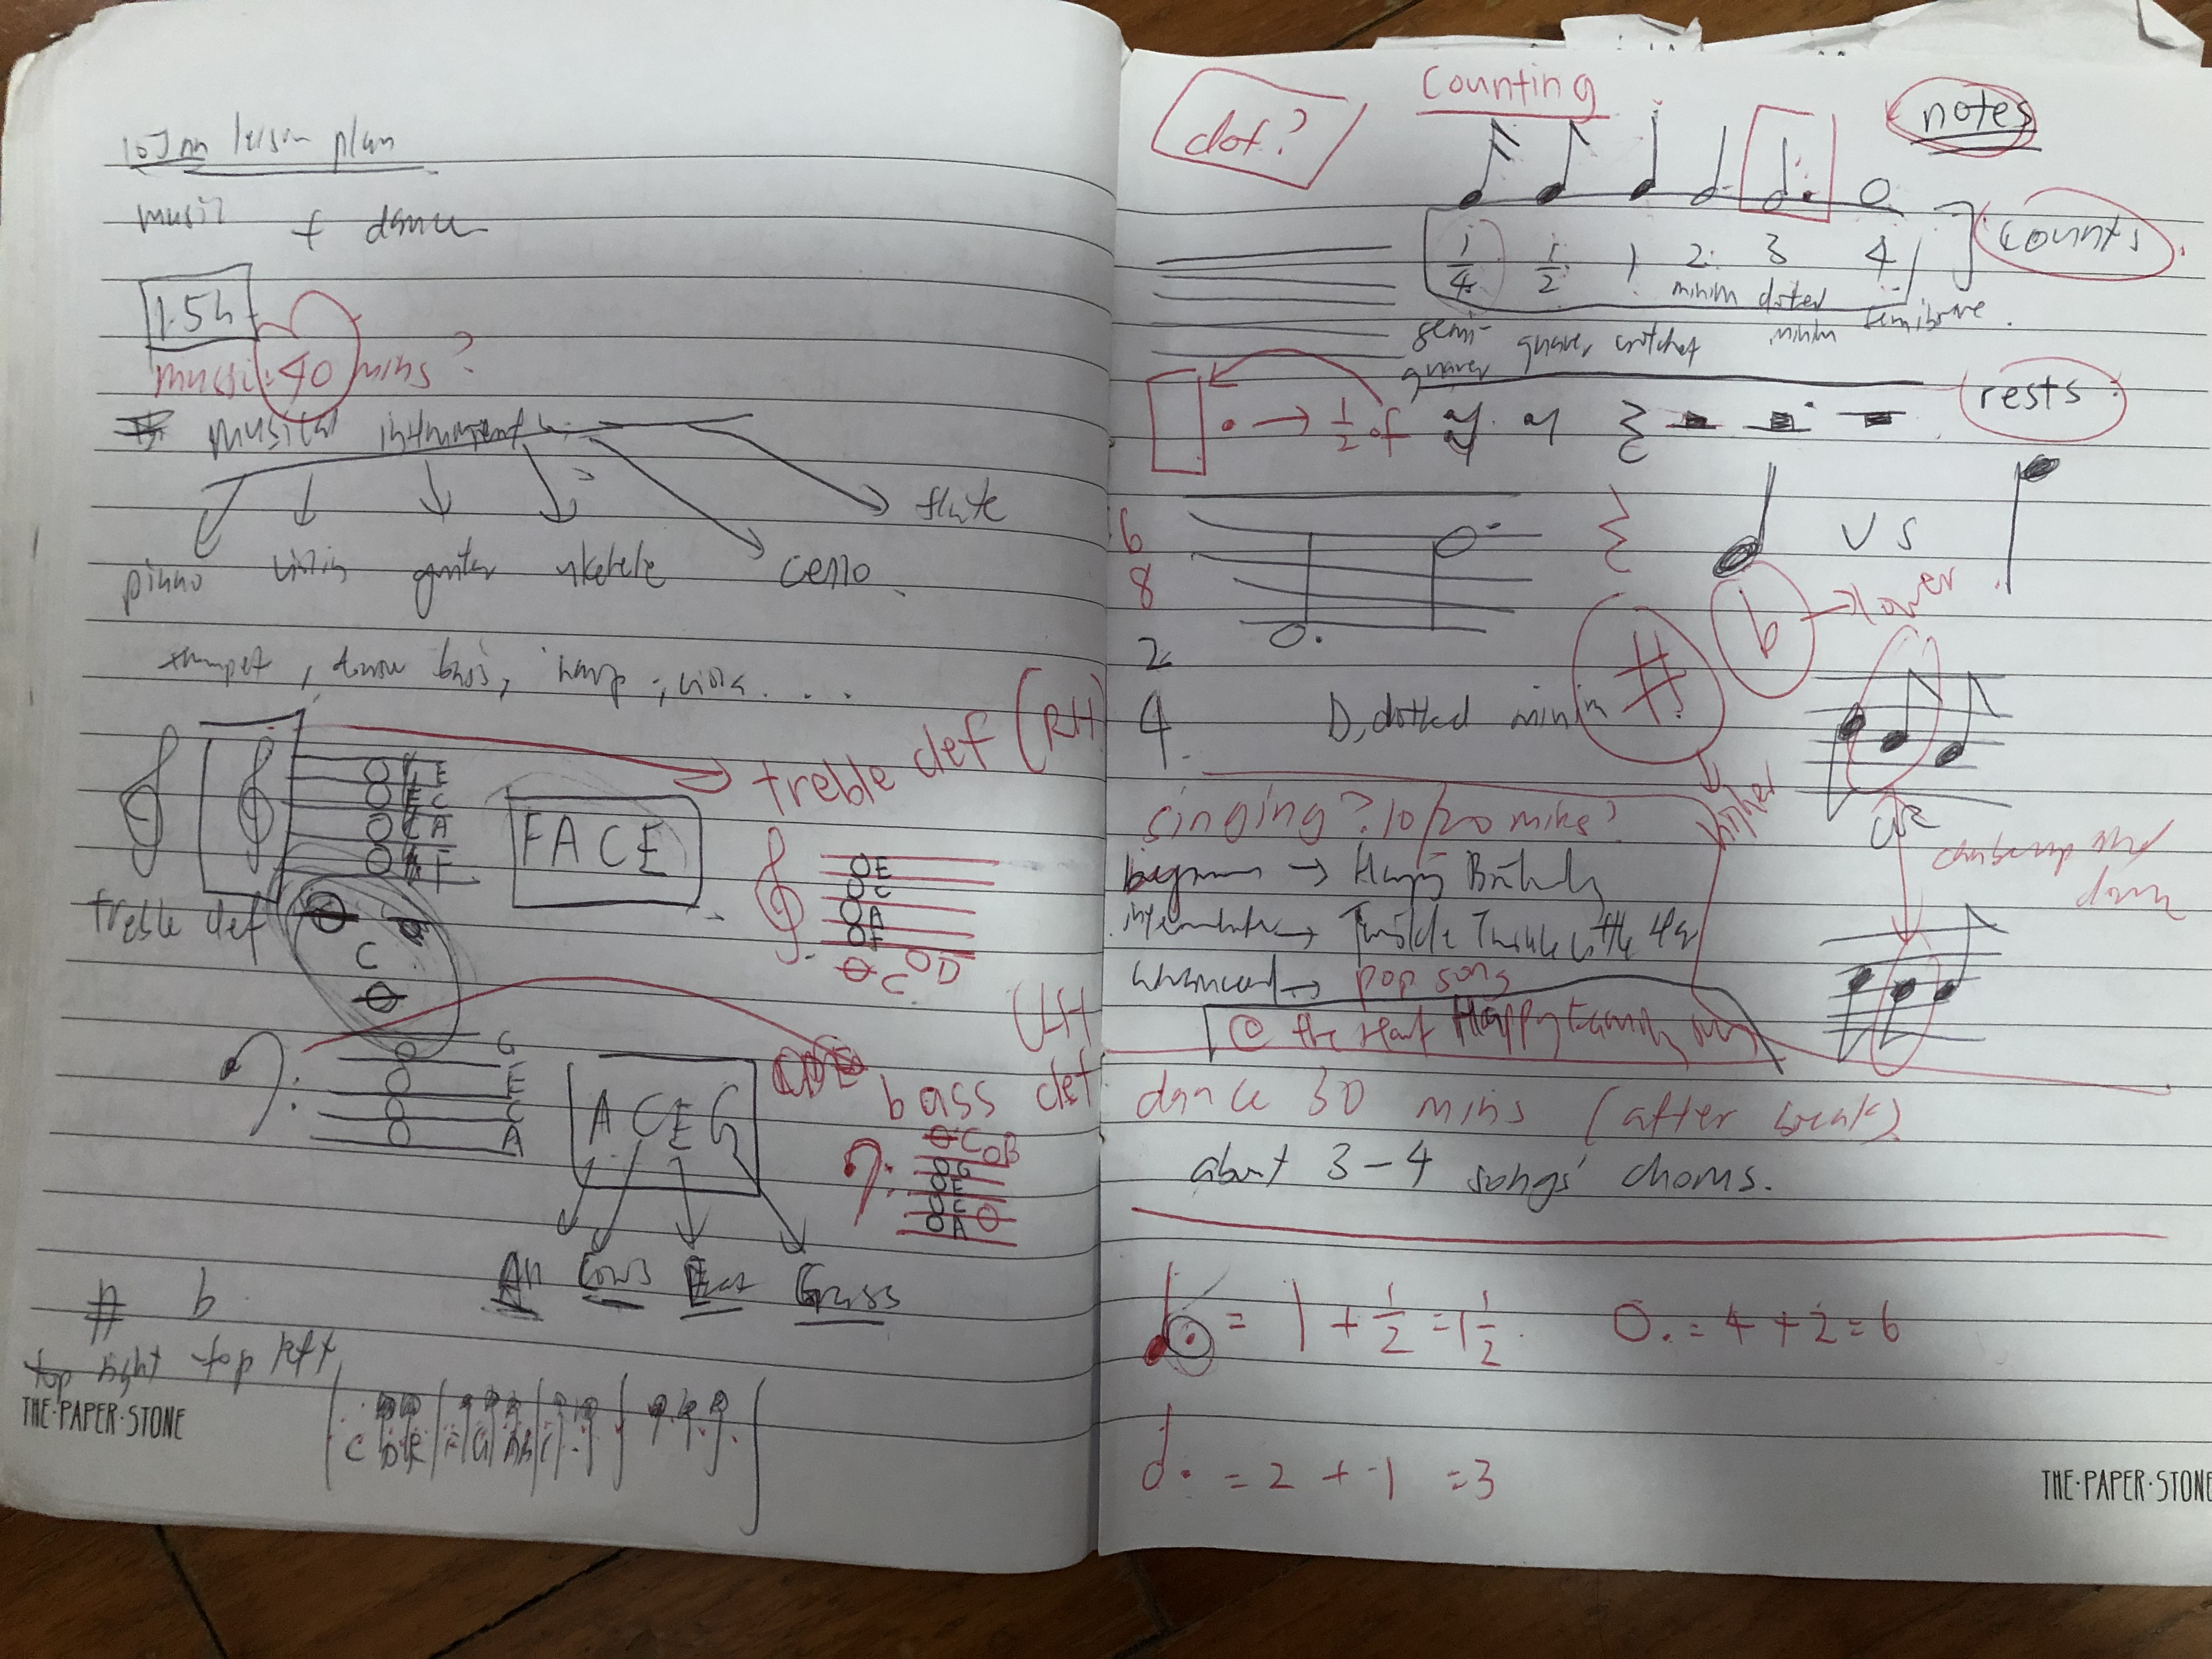 lesson plan
music + dance
1.5h
music: 40 mins?
musical instruments
flute
piano violin guitar ukelele cello
trumpet, double bass, harp, viola ...
treble clef (RH)
E
C
A
F
FACE
treble clef
E
C
A
F
C D
C
LH
G
E
C
A
A C E G
CDE
bass clef
C B
G
E
C
A
All Cows Eat Grass
# b
top right top left
C D E F G A B C
dot?
Counting
notes
1/4 1/2 1 2 3 4
counts
semi-quaver quaver crotchet minim dotted minim semibreve
rests
. → 1/2 of
6
8
VS
b → lower
2
4
D, dotted minim
#
higher
singing? 10/20 mins?
beginner → Happy Birthday
intermediate → Twinkle Twinkle Little
advanced → pop song
@ the start Happy family song
can be up and down
dance 30 mins (after break)
about 3-4 songs' chorus.
= 1 + 1/2 = 1 1/2
o. = 4 + 2 = 6
= 2 + 1 = 3
THE·PAPER·STONE
THE·PAPER·STONE